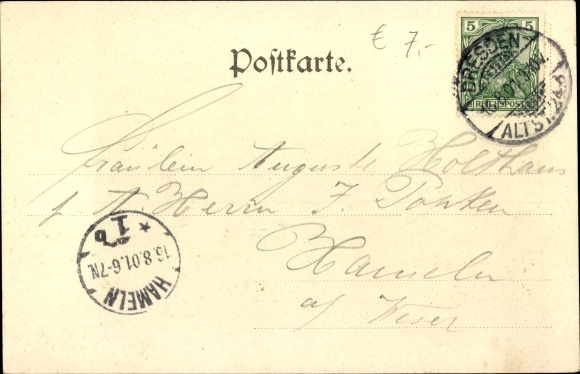 € 7,-
5 5
REICHSPOST
DRESDEN
ALTST. 24
Postkarte.
Fräulein Auguste Holthaus
Herrn J.
Hameln
a/ Weser
HAMELN
16.8.01.6-7N.
* 1b